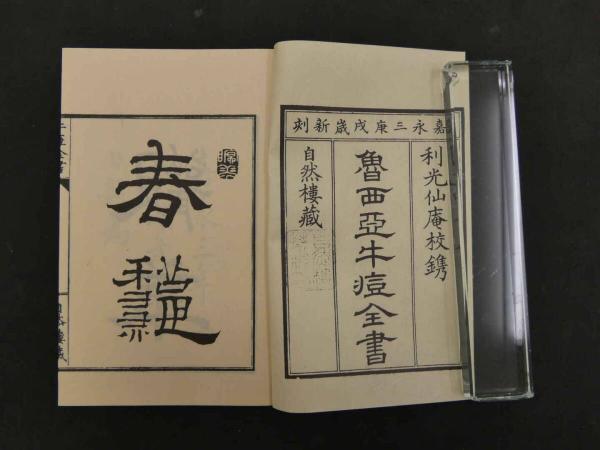 嘉永三庚戌歳新刻
利光仙庵校鐫
魯西亞牛痘全書
自然樓藏
春
自然樓藏